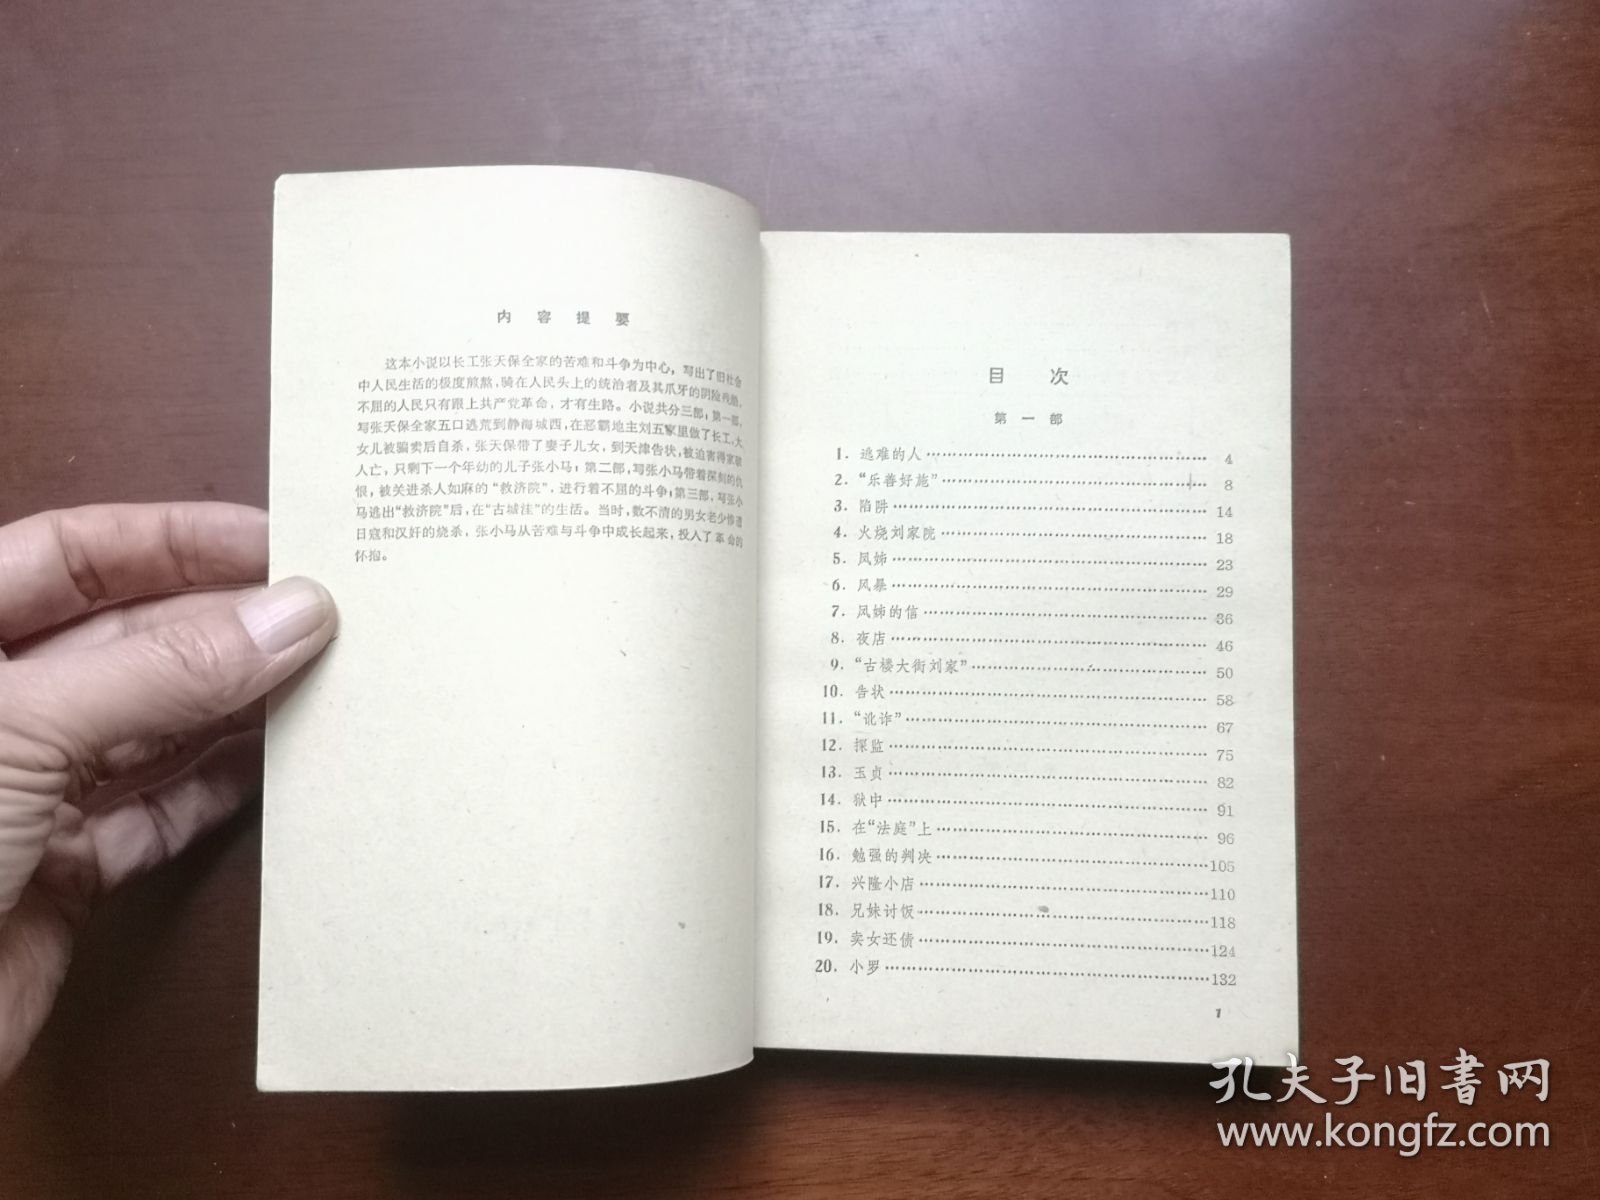 内容提要
这本小说以长工张天保全家的苦难和斗争为中心，写出了旧社会
中人民生活的极度煎熬，骑在人民头上的统治者及其爪牙的阴险残酷，
不屈的人民只有跟上共产党革命，才有生路。小说共分三部：第一部，
写张天保全家五口逃荒到静海城西，在恶霸地主刘五家里做了长工，大
女儿被骗卖后自杀，张天保带了妻子儿女，到天津告状，被迫害得家破
人亡，只剩下一个年幼的儿子张小马；第二部，写张小马带着深刻的仇
恨，被关进杀人如麻的“救济院”，进行着不屈的斗争；第三部，写张小
马逃出“救济院”后，在“古城洼”的生活。当时，数不清的男女老少惨遭
日寇和汉奸的烧杀，张小马从苦难与斗争中成长起来，投入了革命的
怀抱。
目次
第一部
1. 逃难的人……4
2. “乐善好施”……8
3. 陷阱……14
4. 火烧刘家院……18
5. 凤姊……23
6. 风暴……29
7. 凤姊的信……36
8. 夜店……46
9. “古楼大街刘家”……50
10. 告状……58
11. “讹诈”……67
12. 探监……75
13. 玉贞……82
14. 狱中……91
15. 在“法庭”上……96
16. 勉强的判决……105
17. 兴隆小店……110
18. 兄妹讨饭……118
19. 卖女还债……124
20. 小罗……132
1
孔夫子旧書网
www.kongfz.com